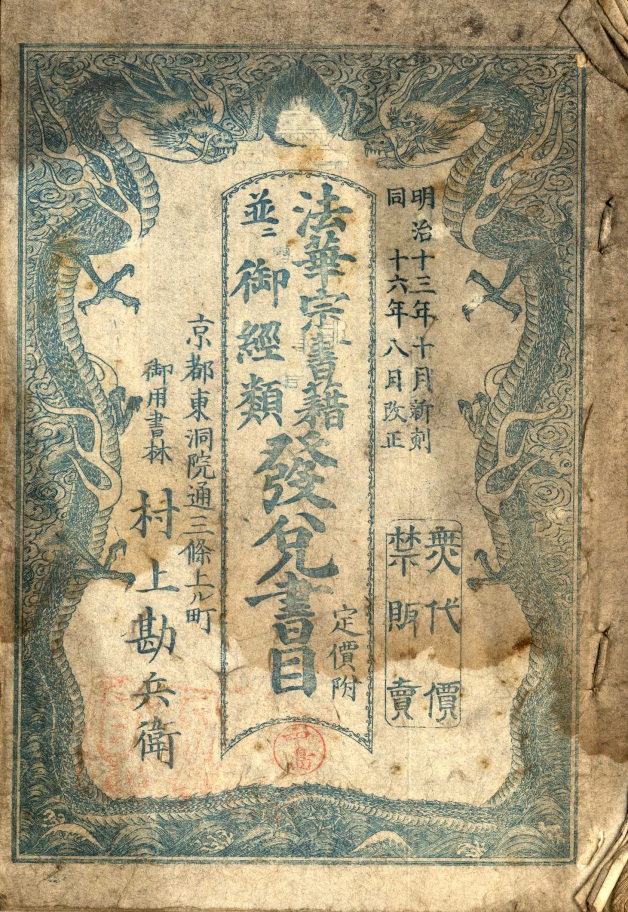 明治十三年十月新刻
同 十六年八月改正
無代價
禁販賣
法華宗書籍
並ニ御經類
發兌書目
定價附
京都東洞院通三條上ル町
御用書林
村上勘兵衛